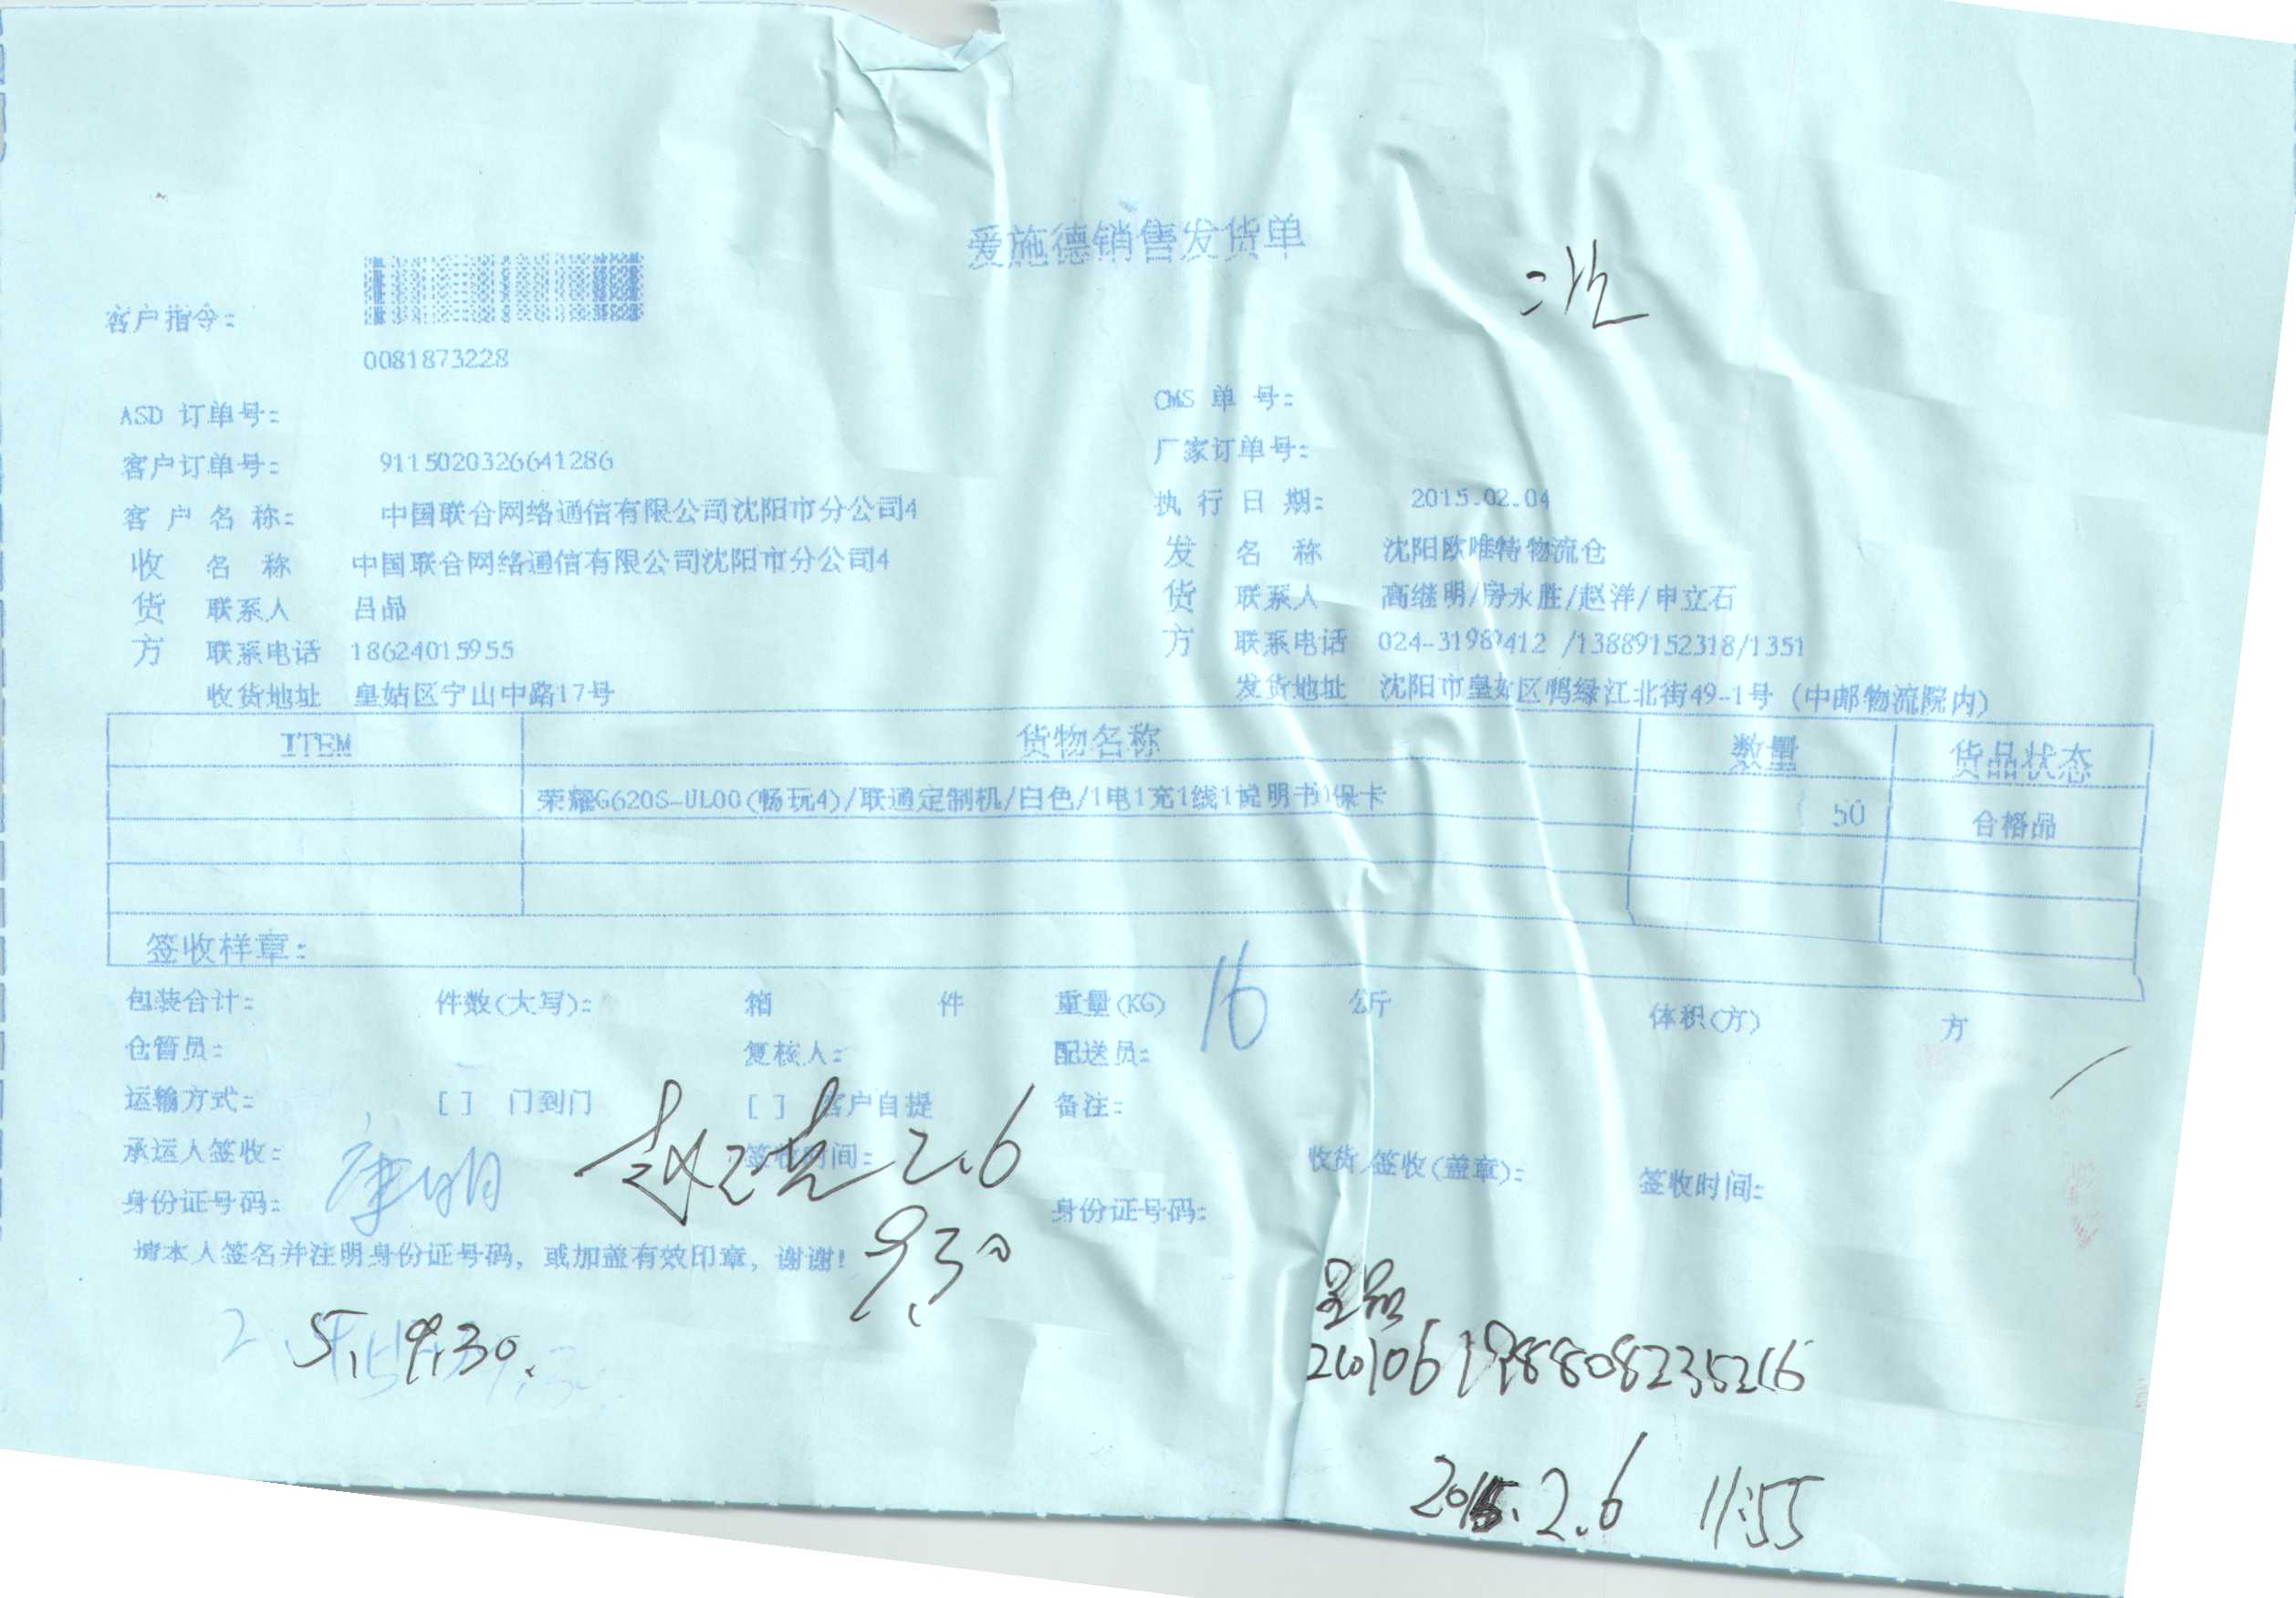 爱施德销售发货单
客户指令:
0081873228
ASD 订单号:
CMS 单 号:
客户订单号: 9115020326641286
厂家订单号:
客 户 名 称: 中国联合网络通信有限公司沈阳市分公司4
执 行 日 期: 2015.02.04
收货方 名 称 中国联合网络通信有限公司沈阳市分公司4
发货方 名 称 沈阳欧唯特物流仓
联系人 吕品
联系人 高继明/房永胜/赵洋/申立石
联系电话 18624015955
联系电话 024-31987412 /13889152318/1351
收货地址 皇姑区宁山中路17号
发货地址 沈阳市皇姑区鸭绿江北街49-1号 (中邮物流院内)
ITEM 货物名称 数量 货品状态
荣耀G620S-UL00(畅玩4)/联通定制机/白色/1电1充1线1说明书1保卡 50 合格品
签收样章:
包装合计: 件数(大写): 箱 件 重量(KG) 16 公斤 体积(方) 方
仓管员: 复核人: 配送员:
运输方式: [ ] 门到门 [ ] 客户自提 备注:
承运人签收: 签收时间: 2.6 收货 签收(盖章): 签收时间:
身份证号码: 身份证号码:
9.30
请本人签名并注明身份证号码, 或加盖有效印章, 谢谢!
吕品
5. 9.30.
2015.2.6 11:55